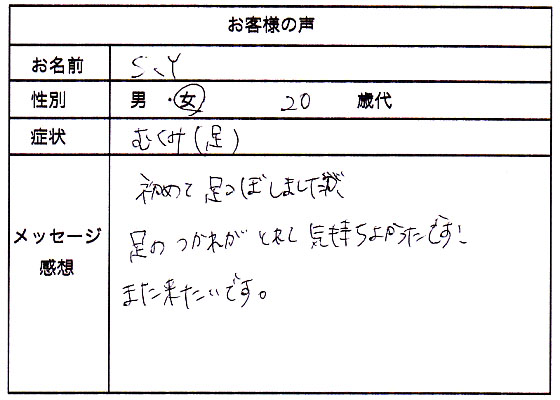 お客様の声
お名前 S、Y
性別 男・女 20 歳代
症状 むくみ(足)
メッセージ
感想
初めて足つぼしましたが、
足のつかれがとれて気持ちよかったです!
また来たいです。